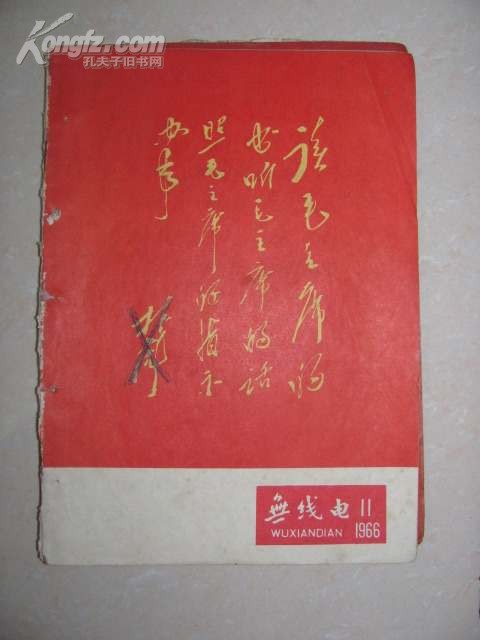 Kongfz.com
孔夫子旧书网
读毛主席的
书听毛主席的话
照毛主席的指示
办事
無线电 11
WUXIANDIAN 1966